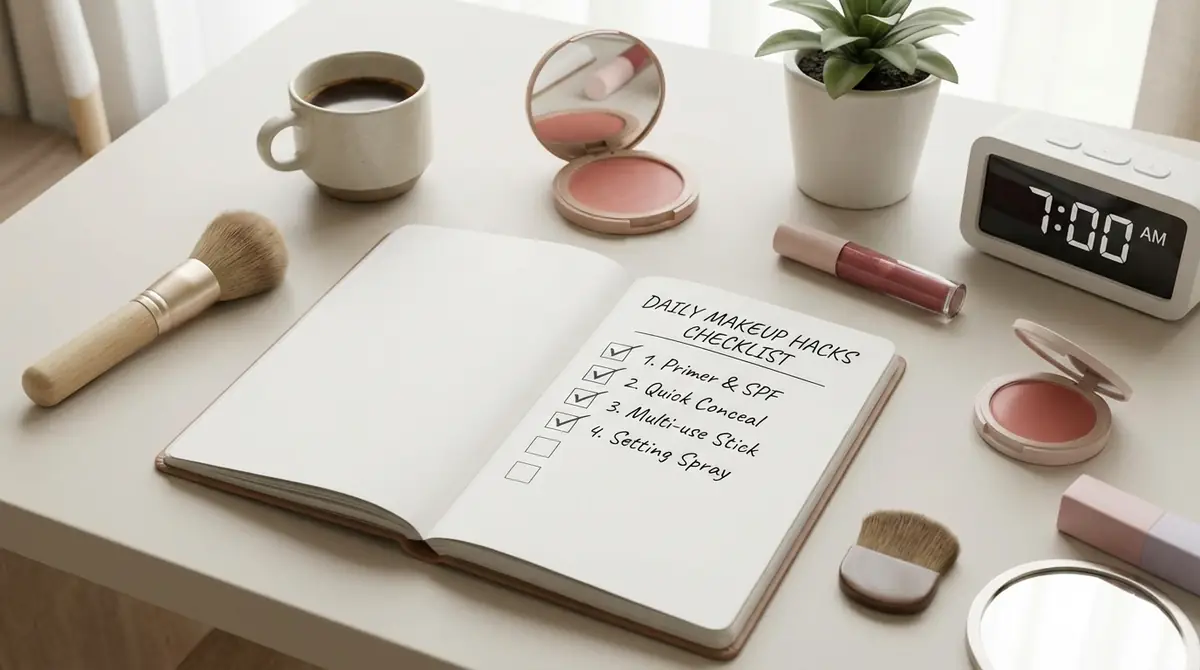 DAILY MAKEUP HACKS
CHECKLIST
1. Primer & SPF
2. Quick Conceal
3. Multi-use Stick
4. Setting Spray
7:00 AM